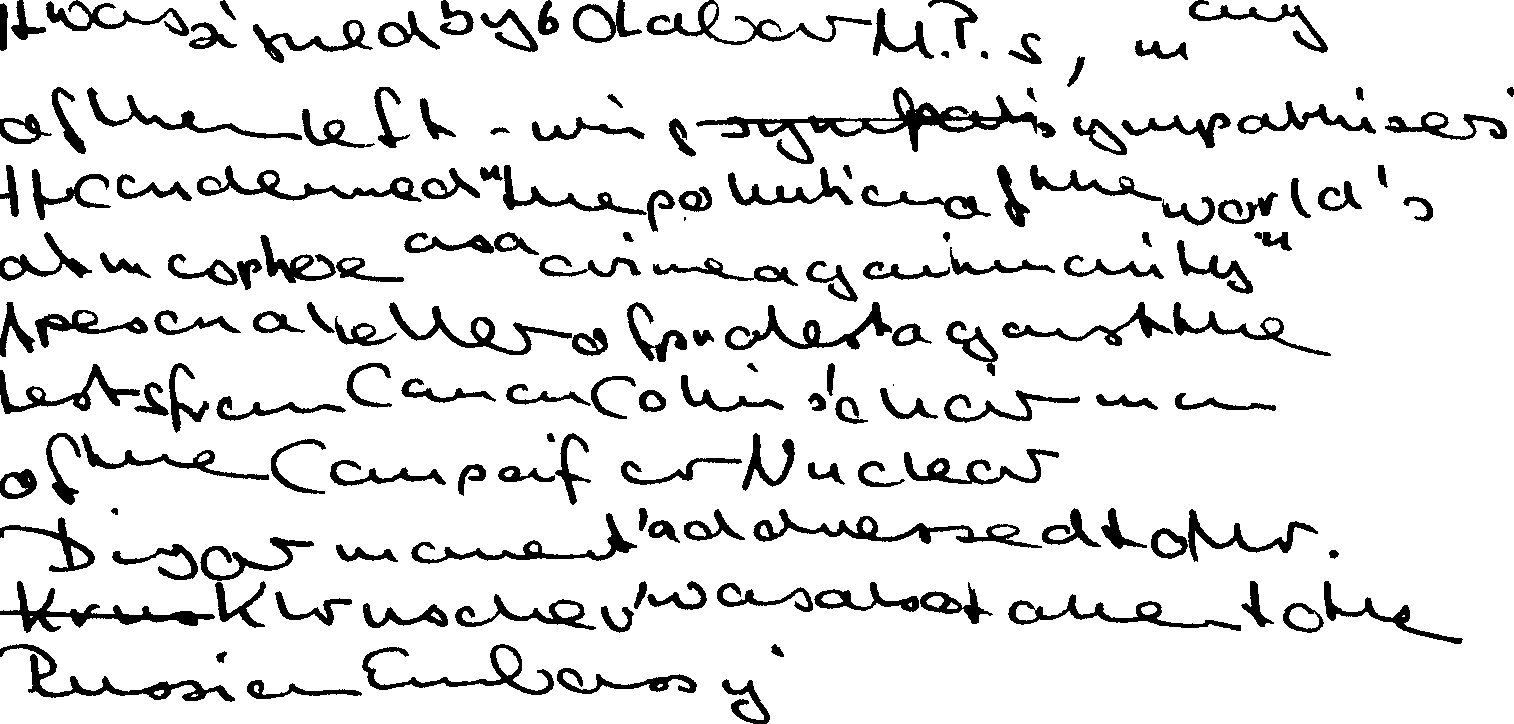 It was signed by 60 Labour M.P.s, many
of them left-wing sympatis sympathisers
It condemned "the pollution of the world's
atmosphere as a crime against humanity"
A personal letter of protest against the
tests from Canon Collins' chairman
of the Campaign for Nuclear
Disarmament, addressed to Mr.
Krus Khruschev, was also taken to the
Russian Embassy